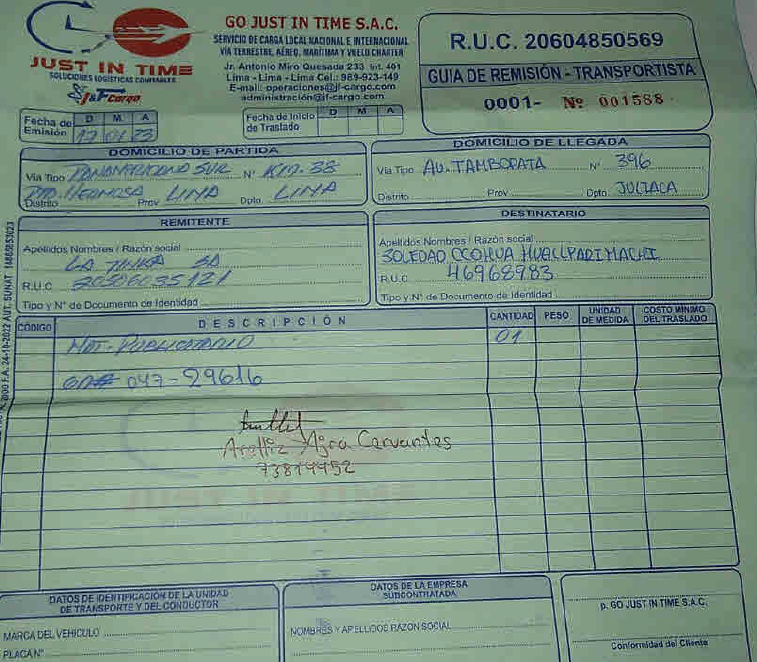 JUST IN TIME
SOLUCIONES LOGÍSTICAS CONFIABLES
J&F Cargo
GO JUST IN TIME S.A.C.
SERVICIO DE CARGA LOCAL NACIONAL E INTERNACIONAL
VÍA TERRESTRE, AÉREO, MARÍTIMA Y VUELO CHARTER
Jr. Antonio Miro Quesada 233 Int. 401
Lima - Lima - Lima Cel.: 989-923-149
E-mail: operaciones@jf-cargo.com
administración@jf-cargo.com
R.U.C. 20604850569
GUIA DE REMISIÓN - TRANSPORTISTA
0001- Nº 001588
Fecha de Emisión D M A
17 01 23
Fecha de Inicio de Traslado D M A
DOMICILIO DE PARTIDA
Via Tipo PANAMERICANA SUR Nº KM. 38
PTO. HERMOSA LIMA LIMA
Distrito Prov Dpto
DOMICILIO DE LLEGADA
Via Tipo AV. TAMBOPATA Nº 396
Distrito Prov Dpto JULIACA
REMITENTE
Apellidos Nombres / Razón social
LA TINKA SA
R.U.C 20506035121
Tipo y Nº de Documento de Identidad
DESTINATARIO
Apellidos Nombres / Razón social
SOLEDAD CCOHUA HUALLPARIMACHI
R.U.C. 46968983
Tipo y Nº de Documento de Identidad
CÓDIGO DESCRIPCIÓN CANTIDAD PESO UNIDAD DE MEDIDA COSTO MÍNIMO DEL TRASLADO
MAT. PUBLICITARIO 01
047-29616
Cervantes
73819952
JUST IN TIME
F.A. 24-10-2022 AUT. SUNAT
DATOS DE IDENTIFICACIÓN DE LA UNIDAD DE TRANSPORTE Y DEL CONDUCTOR
MARCA DEL VEHICULO
PLACA Nº
DATOS DE LA EMPRESA SUBCONTRATADA
NOMBRES Y APELLIDOS RAZON SOCIAL
p. GO JUST IN TIME S.A.C.
Conformidad del Cliente